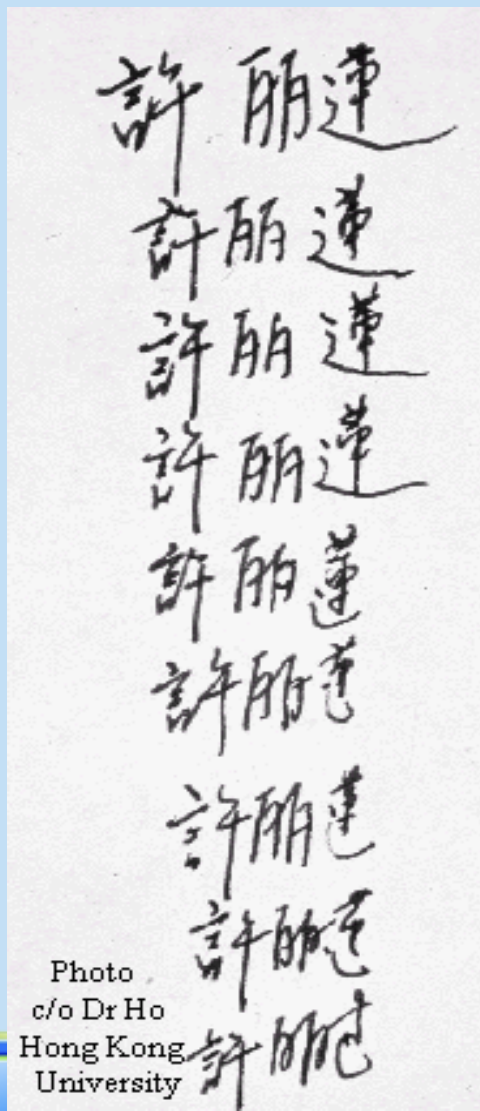 許丽蓮
許丽蓮
許丽蓮
許丽蓮
許丽蓮
許丽蓮
許丽蓮
許丽蓮
許丽蓮
Photo
c/o Dr Ho
Hong Kong
University